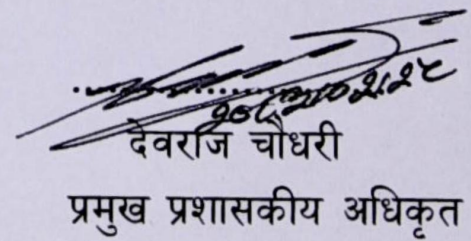 देवराज चौधरी
प्रमुख प्रशासकीय अधिकृत